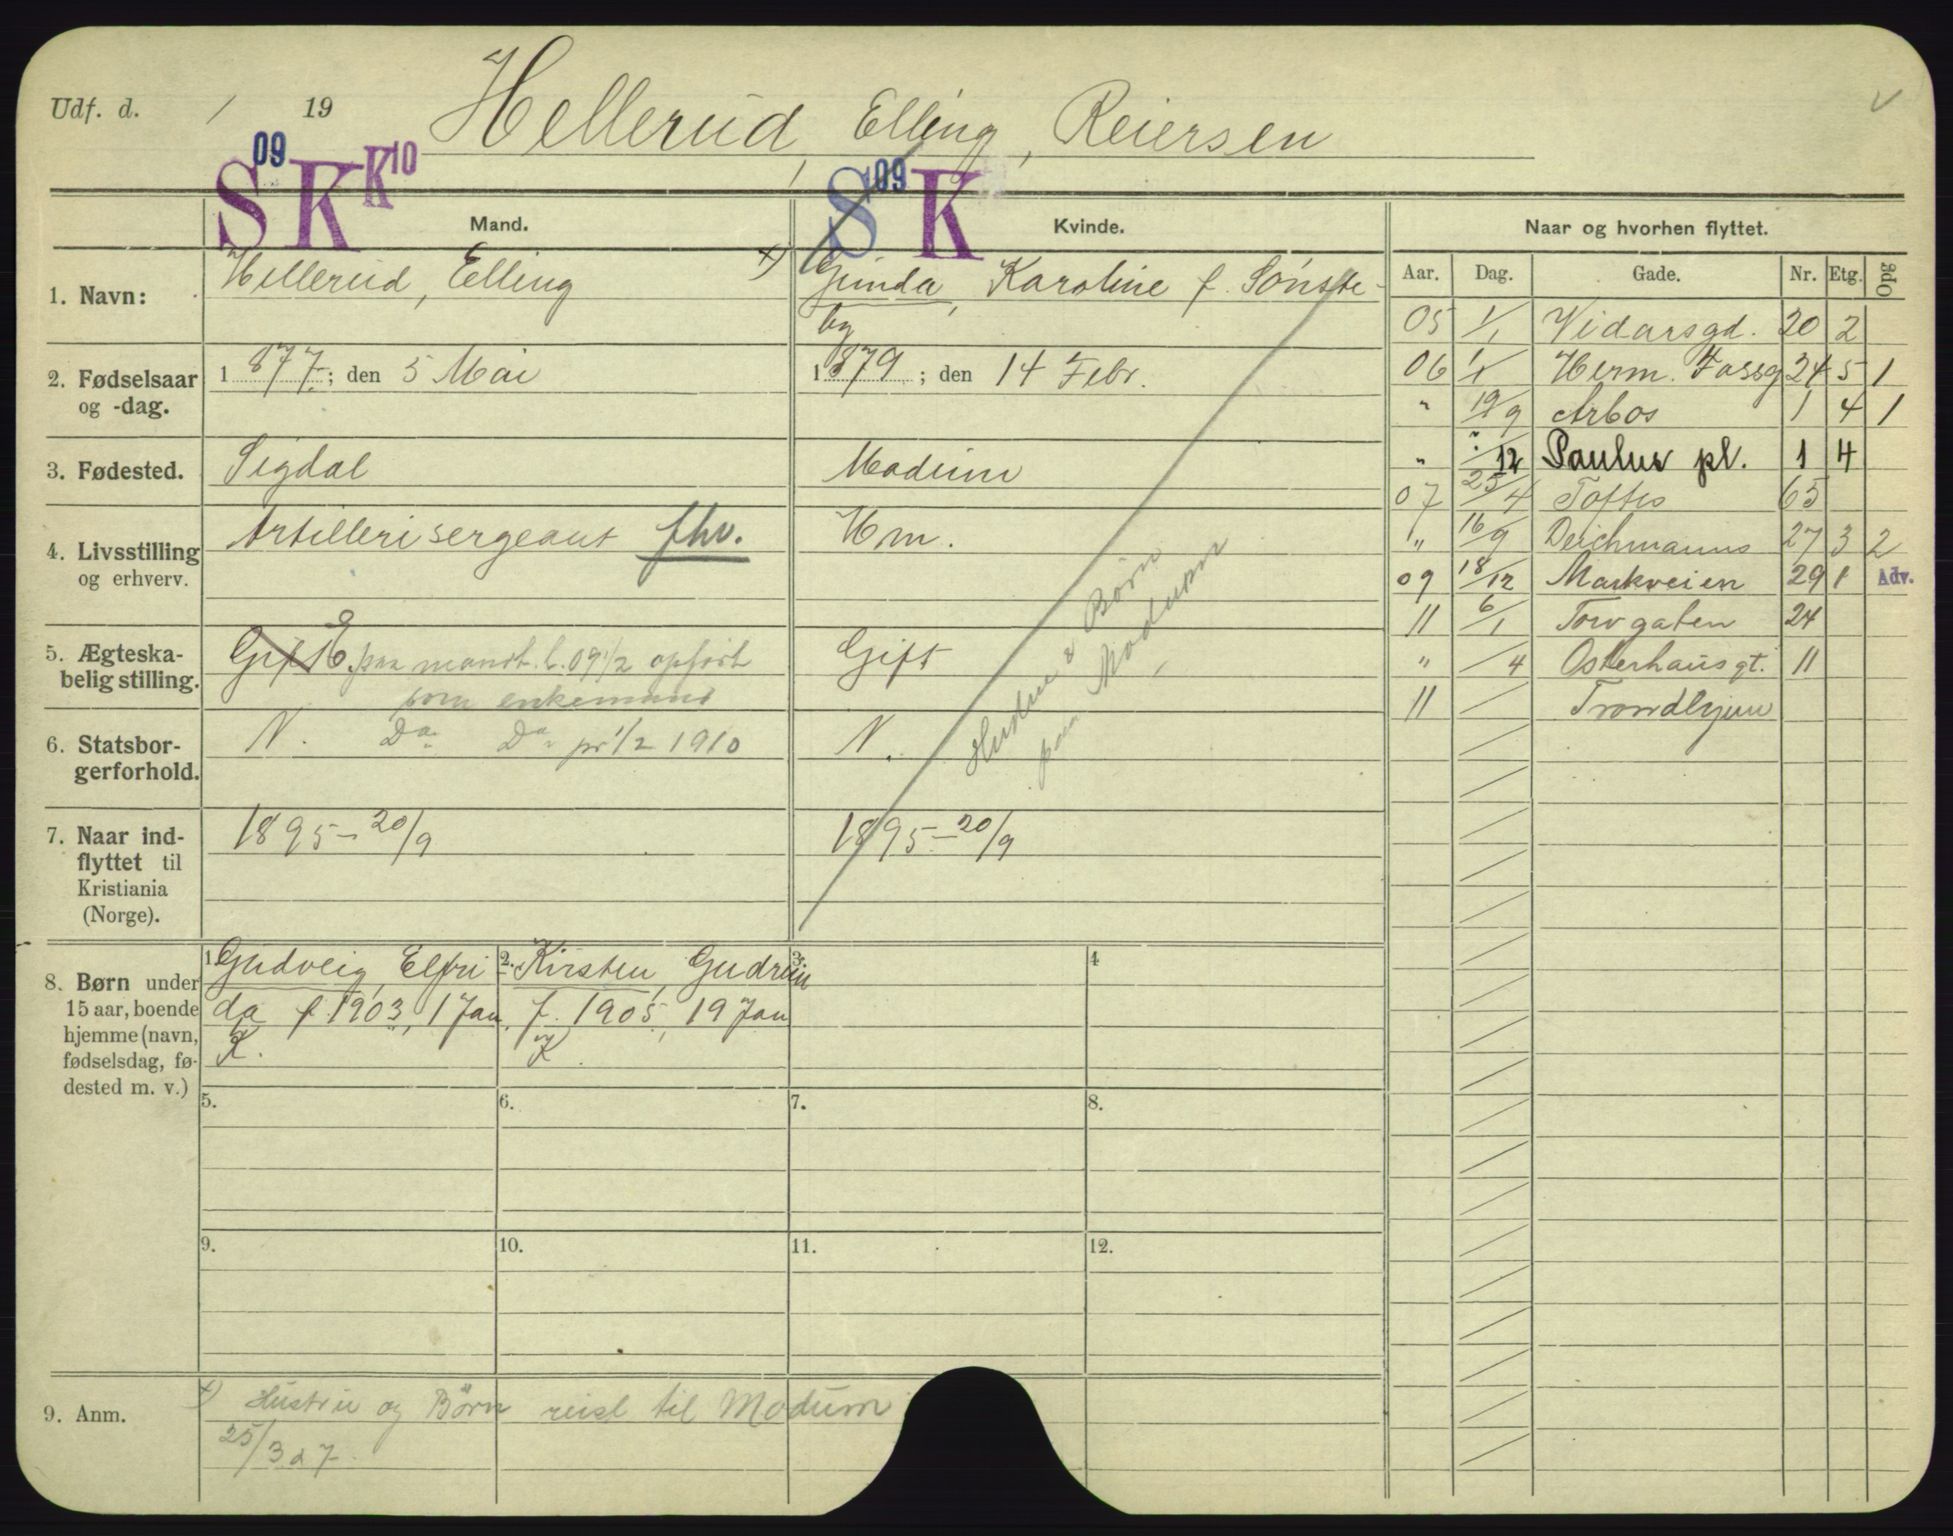 Udf. d. / 19
Hellerud, Elling, Reiersen
S 09 K K 10
S 09 K
Mand.
Kvinde.
Naar og hvorhen flyttet.
Aar. Dag. Gade. Nr. Etg. Opg
1. Navn:
Hellerud, Elling
x) Gunda, Karoline f. Sønste-
by
2. Fødselsaar
og -dag.
1877; den 5 Mai
1879; den 14 Febr.
3. Fødested.
Sigdal
Modum
4. Livsstilling
og erhverv.
Artillerisergeant fhv.
Hm.
5. Ægteska-
belig stilling.
Gift paa mandt. l. 09 1/2 opført
som enkemand
Gift
Hustru & Børn
paa Modum
6. Statsbor-
gerforhold.
N. Do. Do. pr 1/2 1910
N.
7. Naar ind-
flyttet til
Kristiania
(Norge).
1895-20/9
1895-20/9
8. Børn under
15 aar, boende
hjemme (navn,
fødselsdag, fø-
dested m. v.)
1. Gudveig, Elfri-
da f. 1903, 1 Jan.
K.
2. Kirsten, Gudrun
f. 1905, 19 Jan
K.
3.
4
5. 6. 7. 8.
9. 10. 11. 12.
9. Anm.
x) Hustru og Børn reist til Modum
25/3 07.
05 1/1 Vidarsgd. 20 2
06 1/1 Herm. Fossg 24 5 1
" 19/9 Arbos 1 4 1
" /12 Paulus pl. 1 4
07 25/4 Toftes 65
" 16/9 Deichmanns 27 3 2
09 18/12 Markveien 29 1 Adv.
11 6/1 Torvgaten 24
" /4 Osterhausgt. 11
11 / Trondhjem